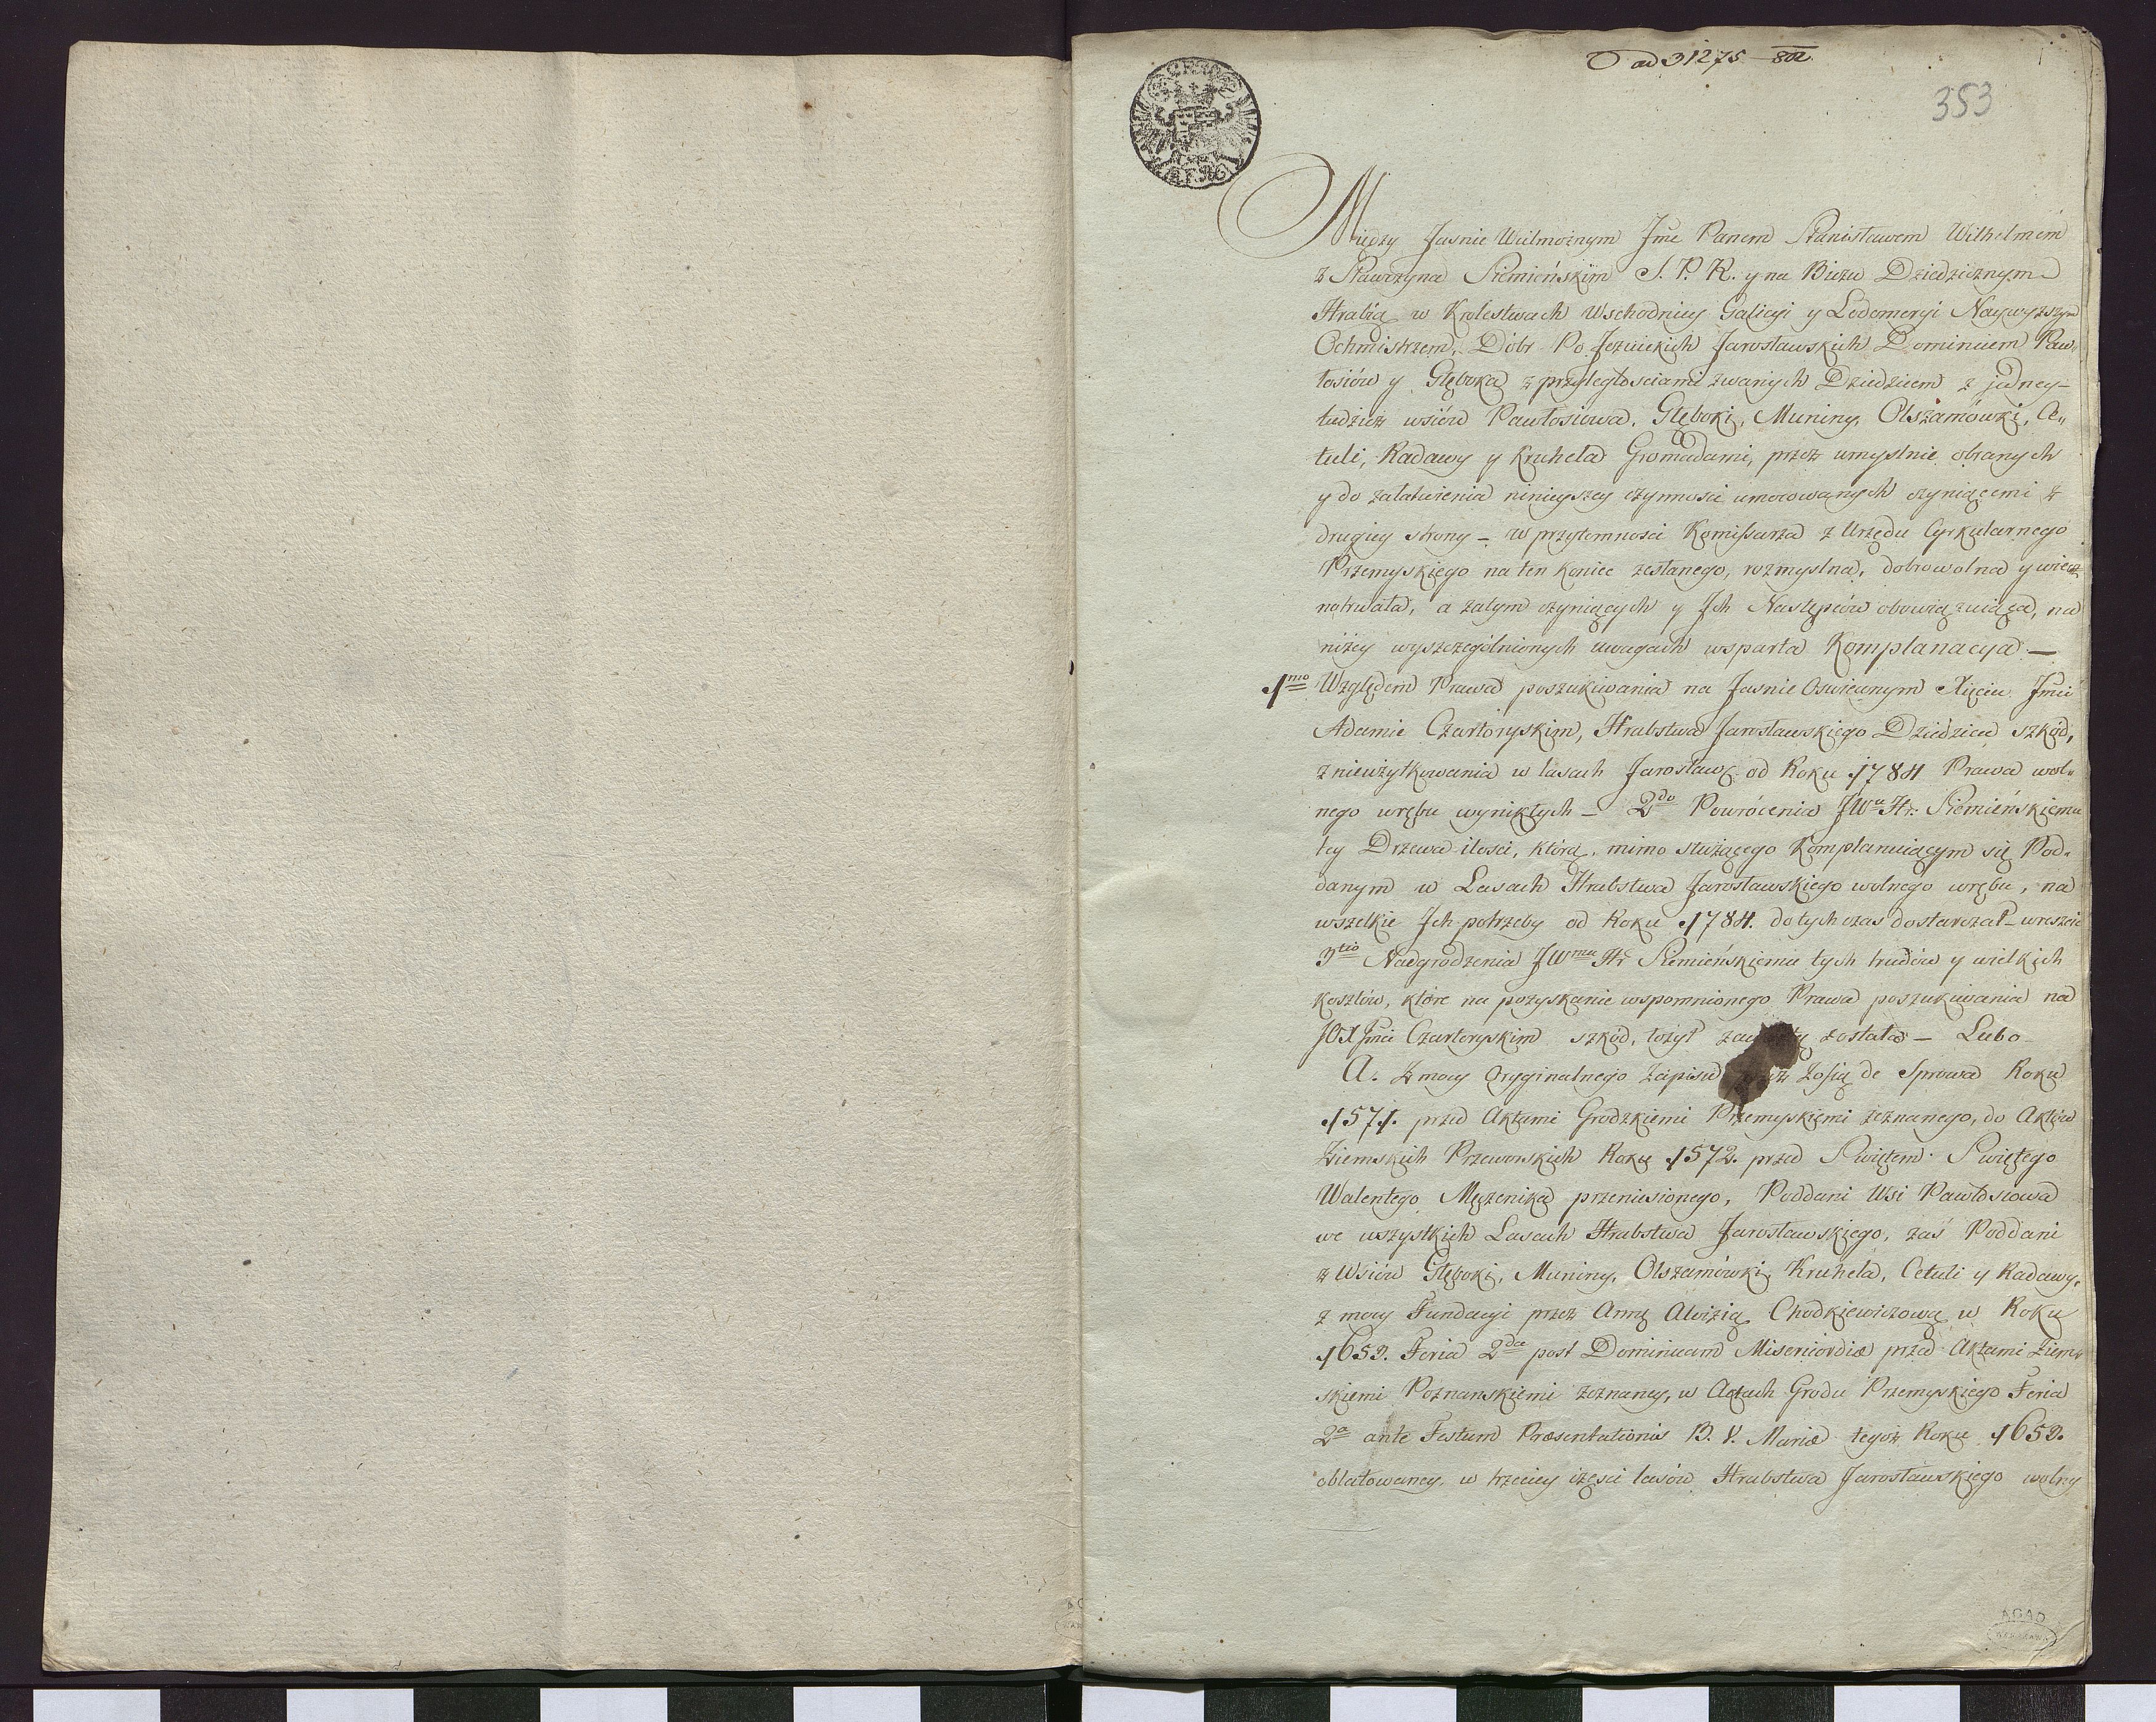 ad 31275 802
353
Między Jasnie Wielmożnym Jmc Panem Stanisławem Wilhelmem
z Stawczyna Siemieńskim S. P. R. y na Biezu Dziedzicznym
Hrabią w Krolestwach Wschodniey Galicyi y Lodomeryi Naywyzszym
Ochmistrzem, Dobr Po Jezuickich Jarosławskich Dominium Paw„
łosiów y Głęboka z przyległosciami zwanych Dziedzicem z jedney –
tudzież wsiów Pawłosiowa, Głęboki, Muniny, Olszamówki, Ce„
tuli, Radawy y Kruhela Gromadami, przez umyslnie obranych
y do załatwienia ninieyszey czynnosci umocowanych czyniącemi z
drugiey strony – w przytomnosci Komissarza z Urzędu Cyrkularnego
Przemyskiego na ten koniec zesłanego, rozmyslna, dobrowolna y wiecz
notrwała, a zatym czyniących y Jch Następców obowiązuiąca, na
niżey wyszczególnionych uwagach wsparta Komplanacya –
1mo Względem Prawa poszukiwania na Jasnie Oswieconym Xięciu Jmci
Adamie Czartoryskim, Hrabstwa Jarosławskiego Dziedzicu szkód,
z nieużytkowania w lasach Jarosław: od Roku 1784 Prawa wol„
nego wrębu wynikłych – 2do Powrócenia JWu Hr: Siemieńskiemu
tey Drzewa ilosci, którą, mimo służącego Komplanuiącym się Pod„
danym w Lasach Hrabstwa Jarosławskiego wolnego wrębu, na
wszelkie Jch potrzeby od Roku 1784. dotychczas dostarczał – wreszcie
3tio Nadgrodzenia JWmu Hr Siemieńskiemu tych trudów y wielkich
kosztów, które na pozyskanie wspomnionego Prawa poszukiwania na
JOX Jmci Czartoryskim szkód, łożył została – Lubo
A. Z mocy Oryginalnego Zapisu Zofią de Sprowa Roku
1571. przed Aktami Grodzkiemi Przemyskiemi zeznanego, do Aktów
Ziemskich Przeworskich Roku 1572. przed Swiętem Swiętego
Walentego Męczenika przeniesionego, Poddani Wsi Pawłosiowa
we wszystkich Lasach Hrabstwa Jarosławskiego, zaś Poddani
z Wsiów Głęboki, Muniny, Olszamówki, Kruhela, Cetuli y Radawy,
z mocy Fundacyi przez Annę Aloizią Chodkiewiczową w Roku
1652. Feria 2da post Dominicam Misericordiæ przed Aktami Ziem„
skiemi Poznanskiemi zeznaney, w Actach Grodu Przemyskiego Feria
2a ante Festum Præsentationis B. V. Mariæ tegoż Roku 1652.
oblatowaney, w trzeciey częsci lasów Hrabstwa Jarosławskiego wolny
AGAD